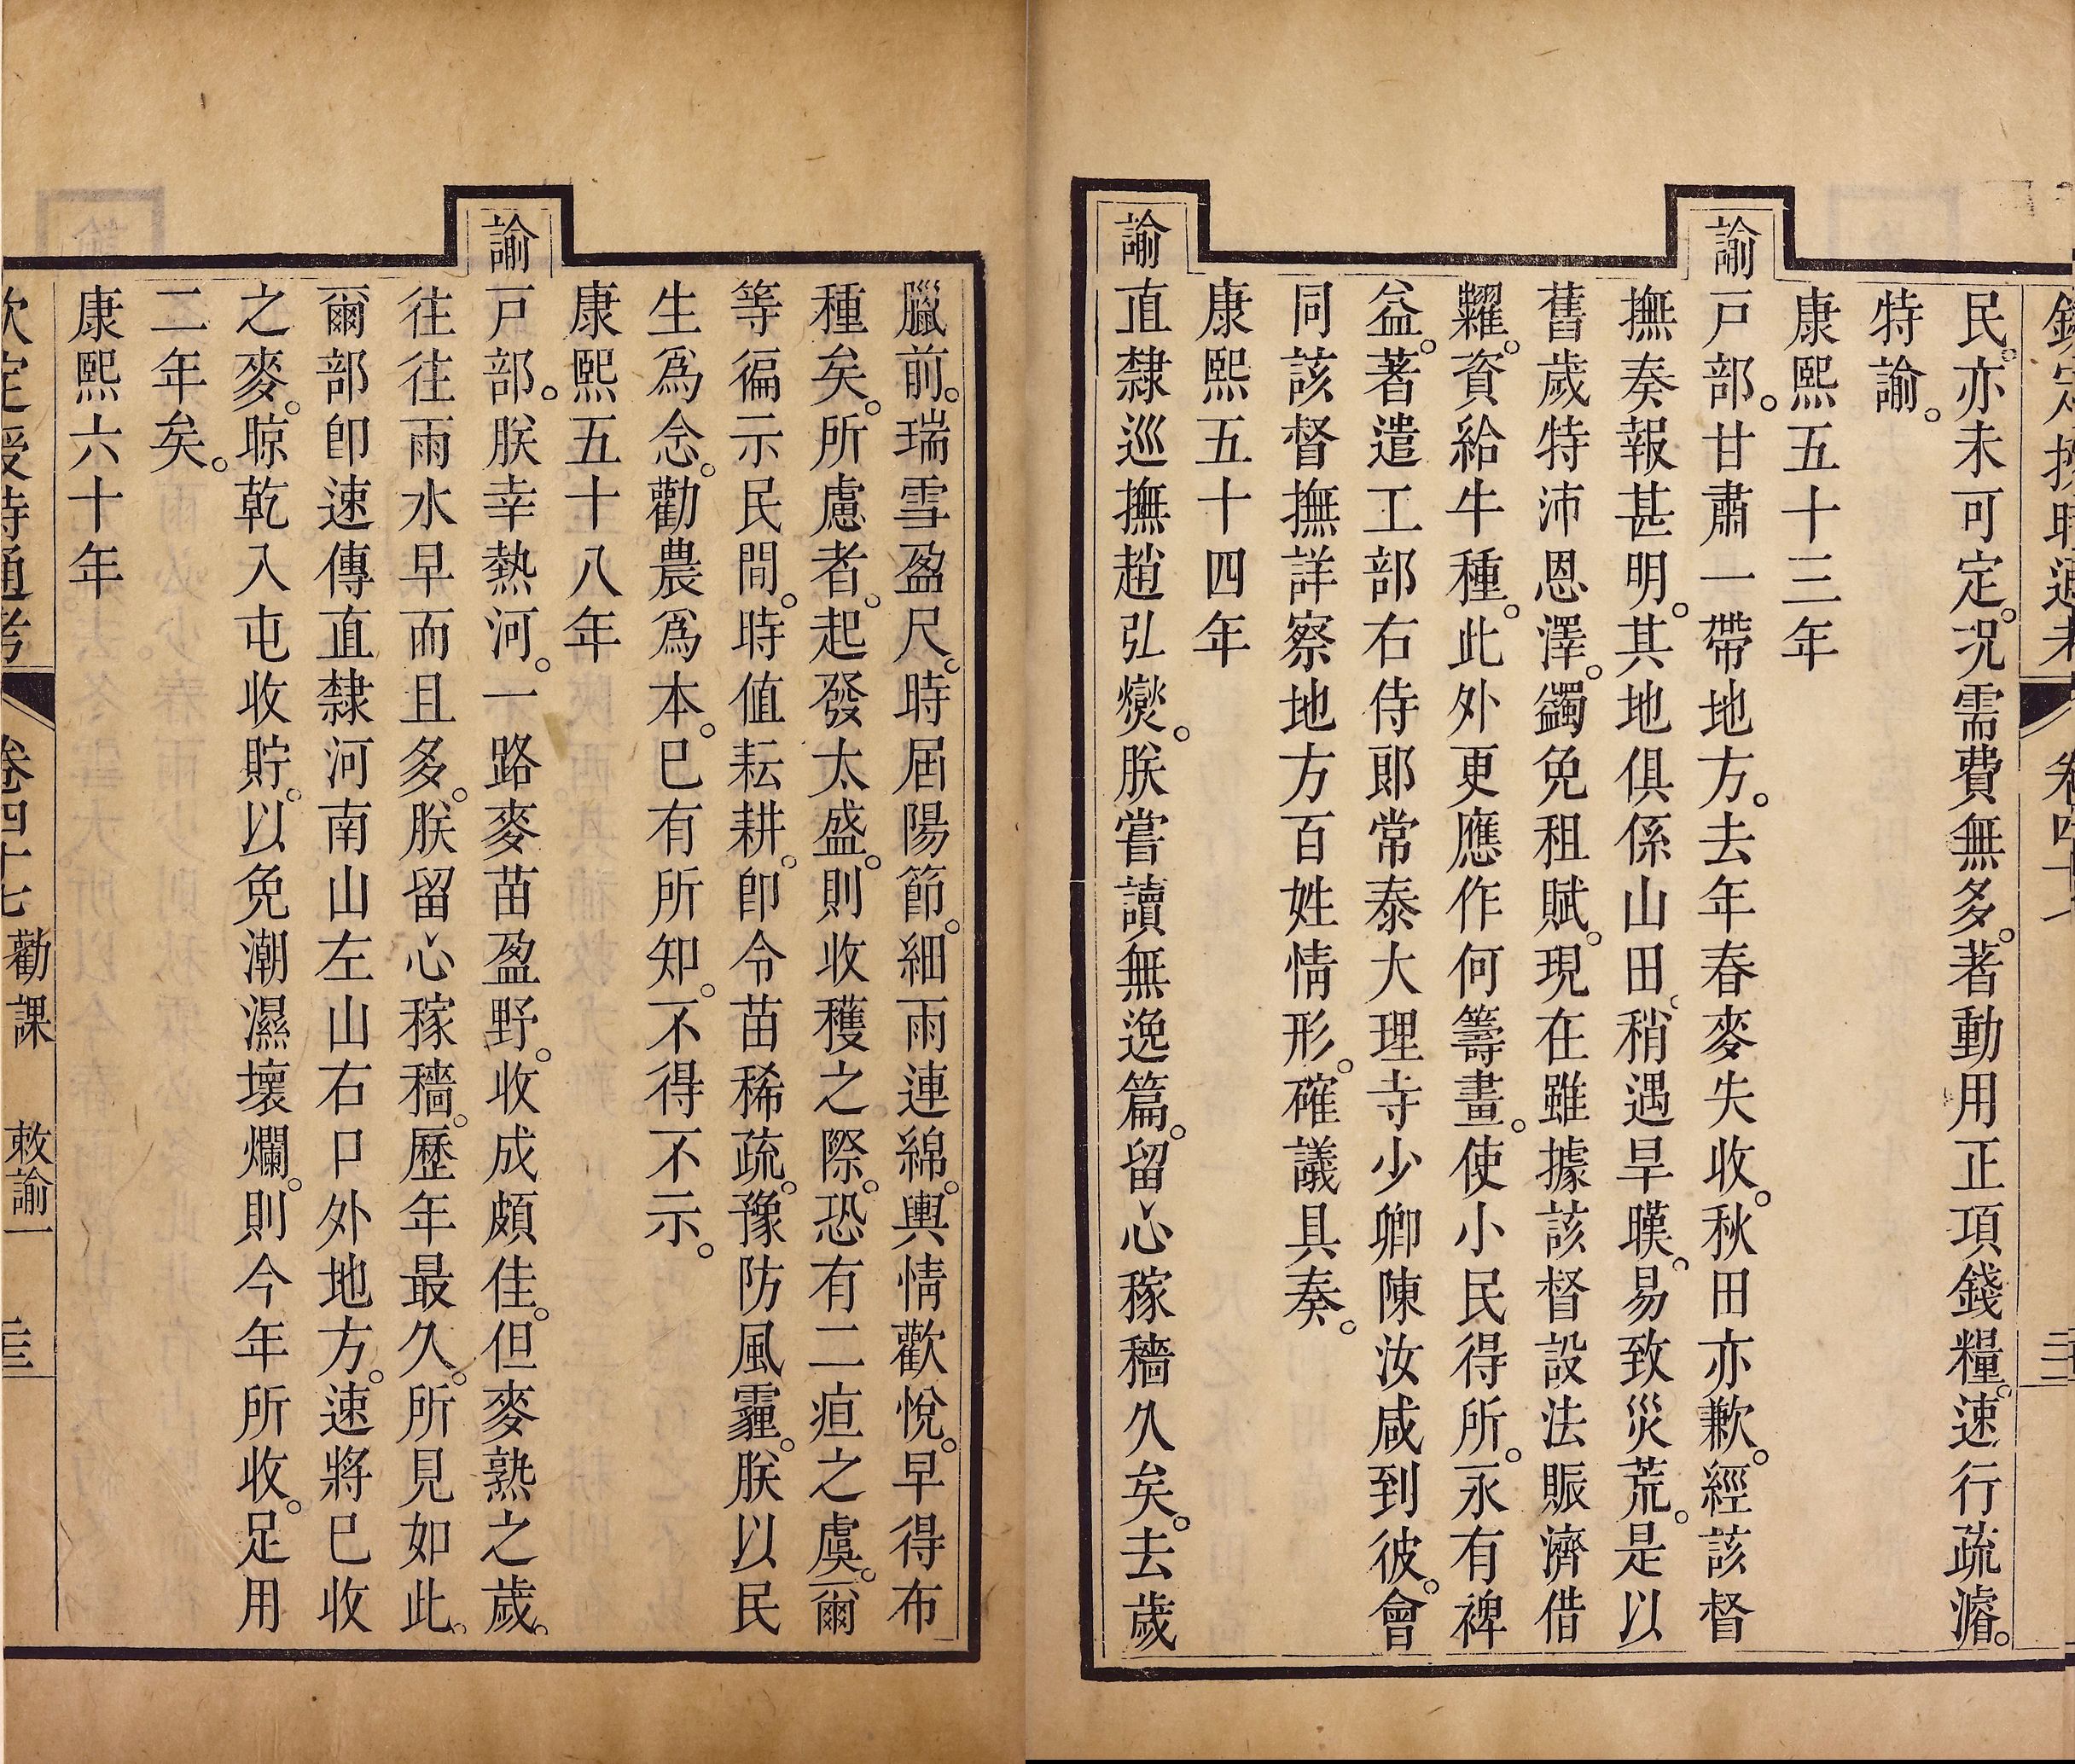 欽定授時通考 卷四十七
民。亦未可定。況需費無多。著動用正項錢糧。速行疏濬。
特諭。
康熙五十三年
諭戸部。甘肅一帶地方。去年春麥失收。秋田亦歉。經該督
撫奏報甚明。其地俱係山田。稍遇旱暵。易致災荒。是以
舊歲特沛恩澤。蠲免租賦。現在雖據該督設法賑濟借
糶。資給牛種。此外更應作何籌畫。使小民得所。永有裨
益。著遣工部右侍郎常泰大理寺少卿陳汝咸到彼。會
同該督撫詳察地方百姓情形。確議具奏。
康熙五十四年
諭直隸巡撫趙弘燮。朕嘗讀無逸篇。留心稼穡久矣。去歲
臘前。瑞雪盈尺。時屆陽節。細雨連綿。輿情歡悅。早得布
種矣。所慮者。起發太盛。則收穫之際。恐有二疸之虞。爾
等徧示民間。時值耘耕。卽令苗稀疏。豫防風霾。朕以民
生爲念。勸農爲本。巳有所知。不得不示。
康熙五十八年
諭戸部。朕幸熱河。一路麥苗盈野。收成頗佳。但麥熟之歲。
往往雨水早而且多。朕留心稼穡。歷年最久。所見如此。
爾部卽速傳直隸河南山左山右口外地方。速將巳收
之麥。晾乾入屯收貯。以免潮濕壞爛。則今年所收。足用
二年矣。
康熙六十年
欽定授時通考 卷四十七 勸課 敕諭一